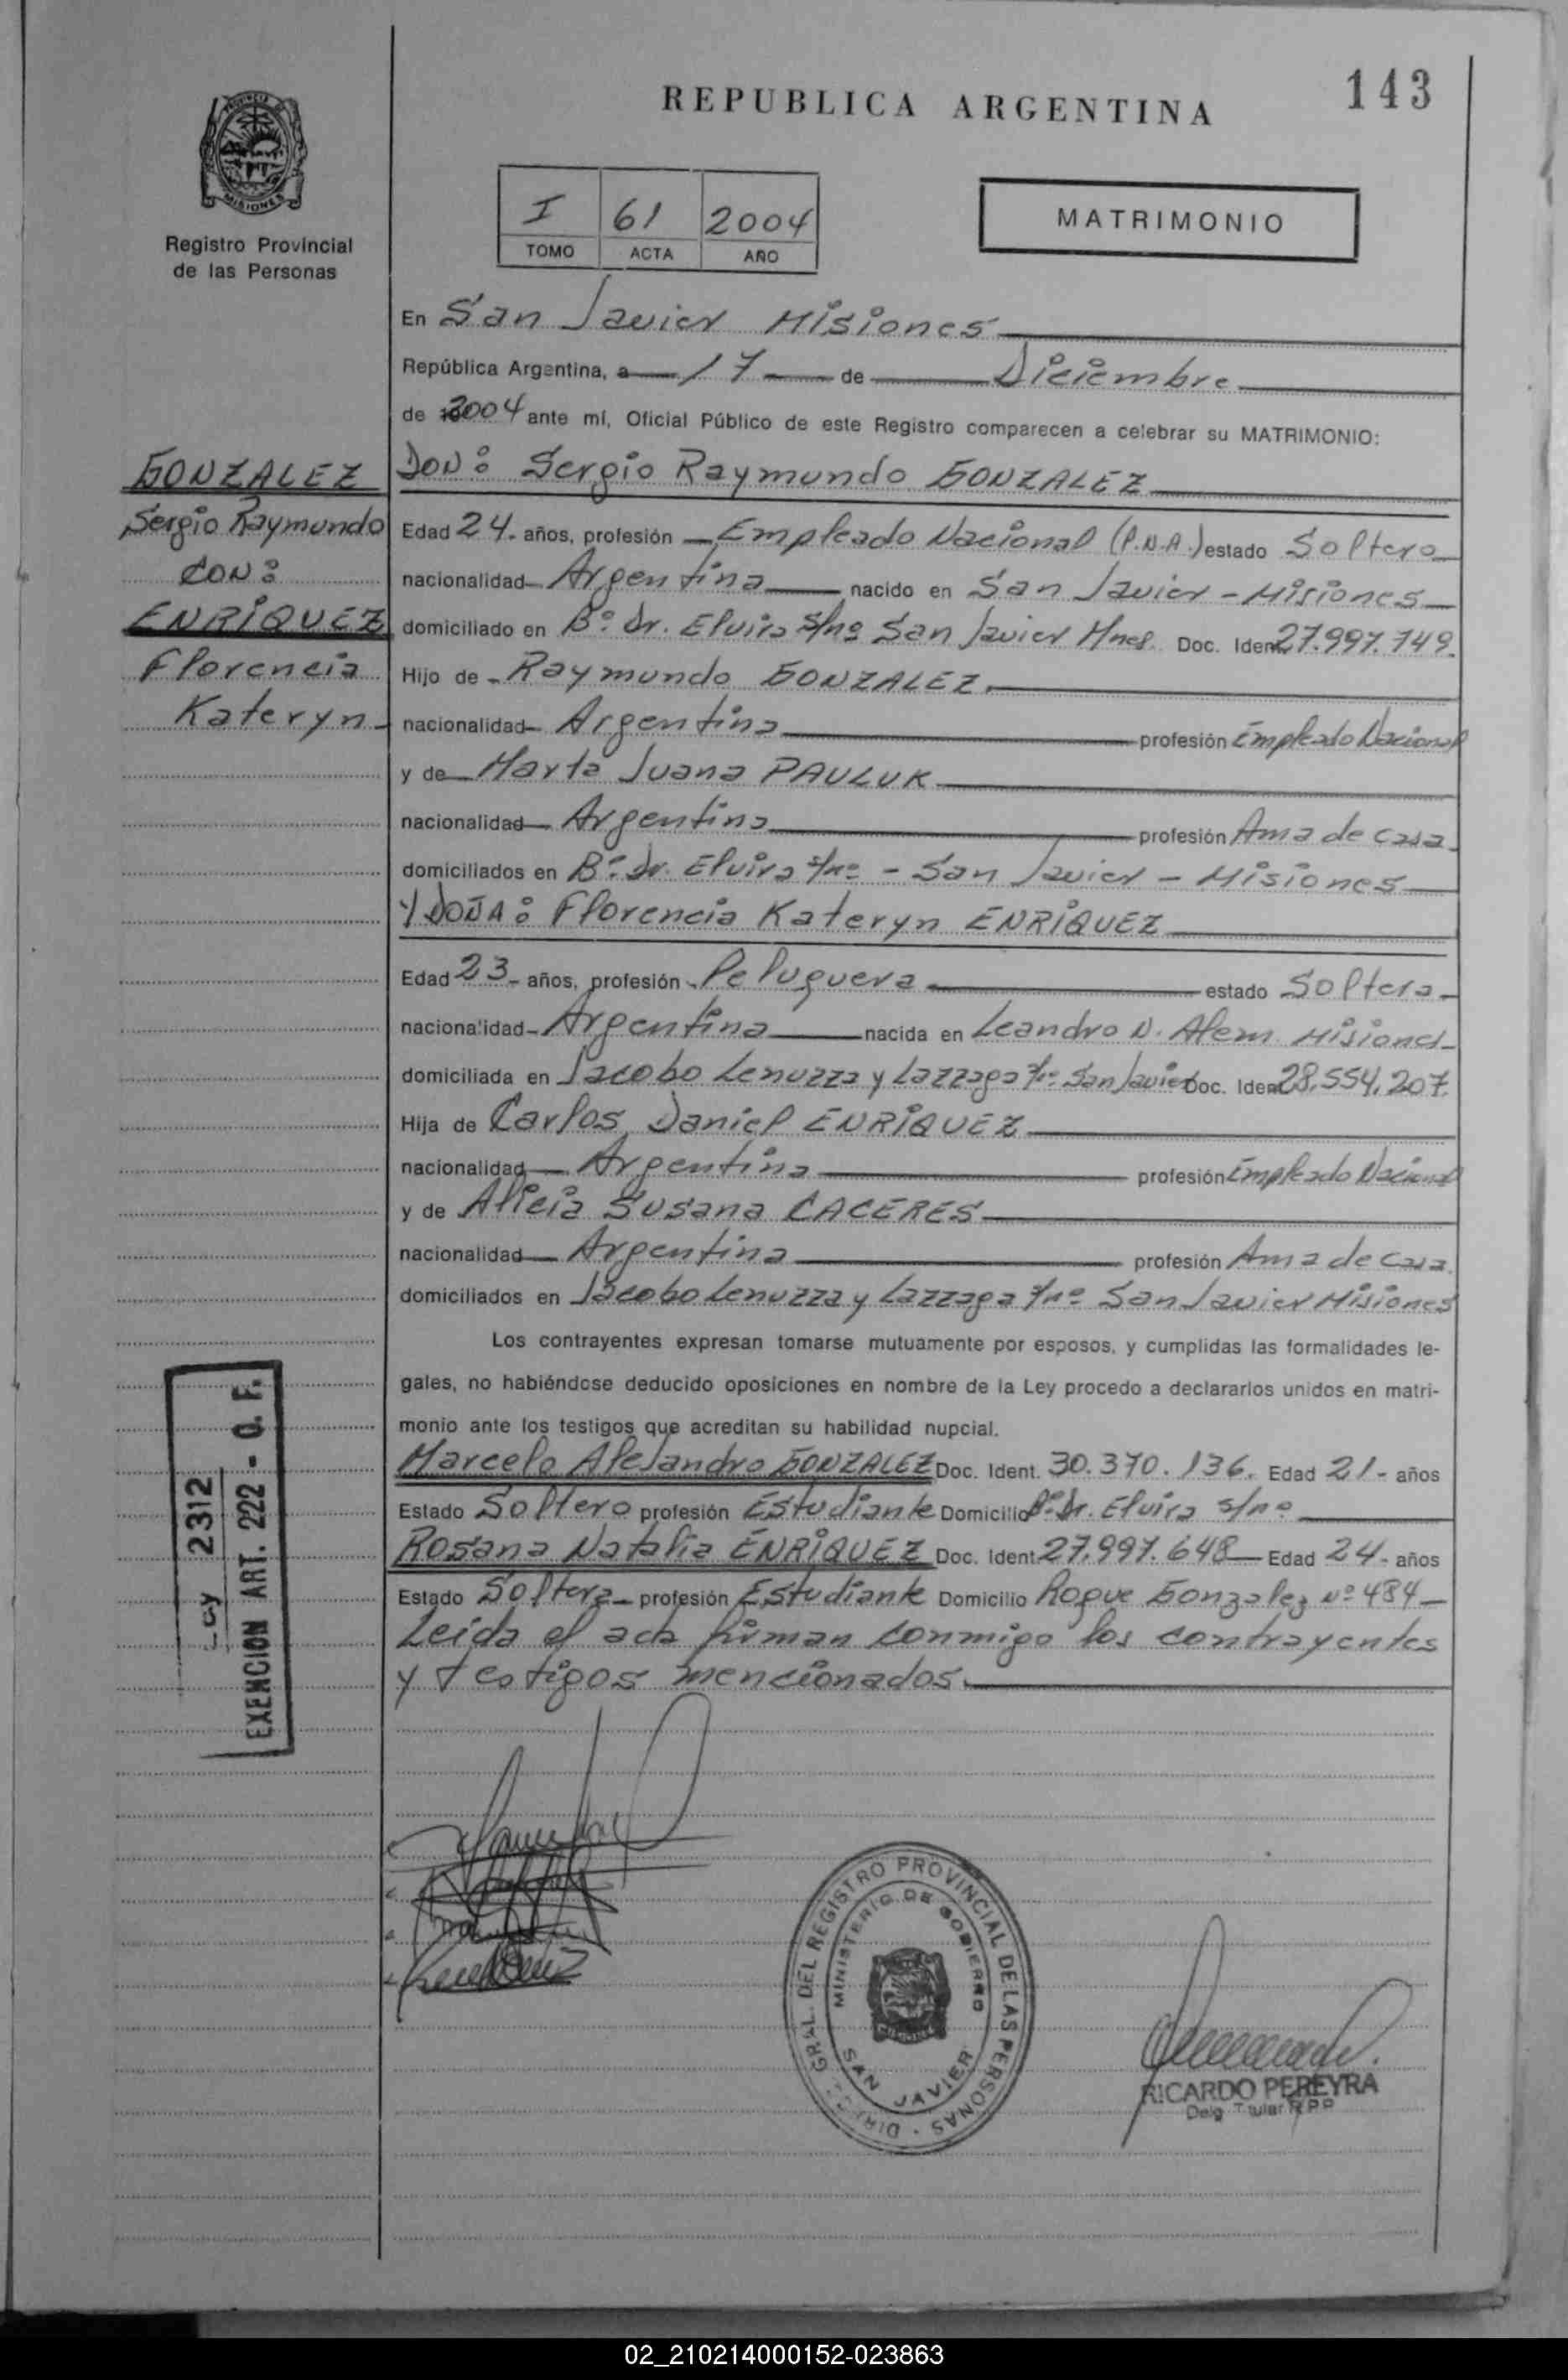 143
REPUBLICA ARGENTINA
MISIONES
Registro Provincial
de las Personas
I 61 2004
TOMO ACTA AÑO
MATRIMONIO
En San Javier Misiones
República Argentina, a 17 de Diciembre
de 2004 ante mí, Oficial Público de este Registro comparecen a celebrar su MATRIMONIO:
GONZALEZ
Sergio Raymundo
CON:
ENRIQUEZ
Florencia
Kateryn
DON: Sergio Raymundo GONZALEZ
Edad 24. años, profesión Empleado Nacional (P.N.A.) estado Soltero
nacionalidad Argentina nacido en San Javier - Misiones
domiciliado en Bº Dr. Elvira s/nº San Javier Mnes. Doc. Iden. 27.997.749.
Hijo de Raymundo GONZALEZ
nacionalidad Argentina profesión Empleado Nacional
y de Marta Juana PAULUK
nacionalidad Argentina profesión Ama de casa
domiciliados en Bº Dr. Elvira s/nº - San Javier - Misiones
Y DOÑA: Florencia Kateryn ENRIQUEZ
Edad 23- años, profesión Peluquera estado Soltera
nacionalidad Argentina nacida en Leandro N. Alem Misiones
domiciliada en Jacobo Lenuzza y Lazzaga s/nº San Javier Doc. Iden. 28.554.207.
Hija de Carlos Daniel ENRIQUEZ
nacionalidad Argentina profesión Empleado Nacional
y de Alicia Susana CACERES
nacionalidad Argentina profesión Ama de casa
domiciliados en Jacobo Lenuzza y Lazzaga s/nº San Javier Misiones
Los contrayentes expresan tomarse mutuamente por esposos, y cumplidas las formalidades le-
gales, no habiéndose deducido oposiciones en nombre de la Ley procedo a declararlos unidos en matri-
monio ante los testigos que acreditan su habilidad nupcial.
Marcelo Alejandro GONZALEZ Doc. Ident. 30.370.136. Edad 21- años
Estado Soltero profesión Estudiante Domicilio Bº Dr. Elvira s/nº
Rosana Natalia ENRIQUEZ Doc. Ident. 27.997.648 Edad 24- años
Estado Soltera profesión Estudiante Domicilio Roque Gonzalez Nº 484
Leida el acta firman conmigo los contrayentes
y testigos mencionados.
Ley 2312
EXENCION ART. 222 - O. F.
DIREC. GRAL. DEL REGISTRO PROVINCIAL DE LAS PERSONAS
MINISTERIO DE GOBIERNO
SAN JAVIER
RICARDO PEREYRA
Deleg. Titular R.P.P.
02_210214000152-023863